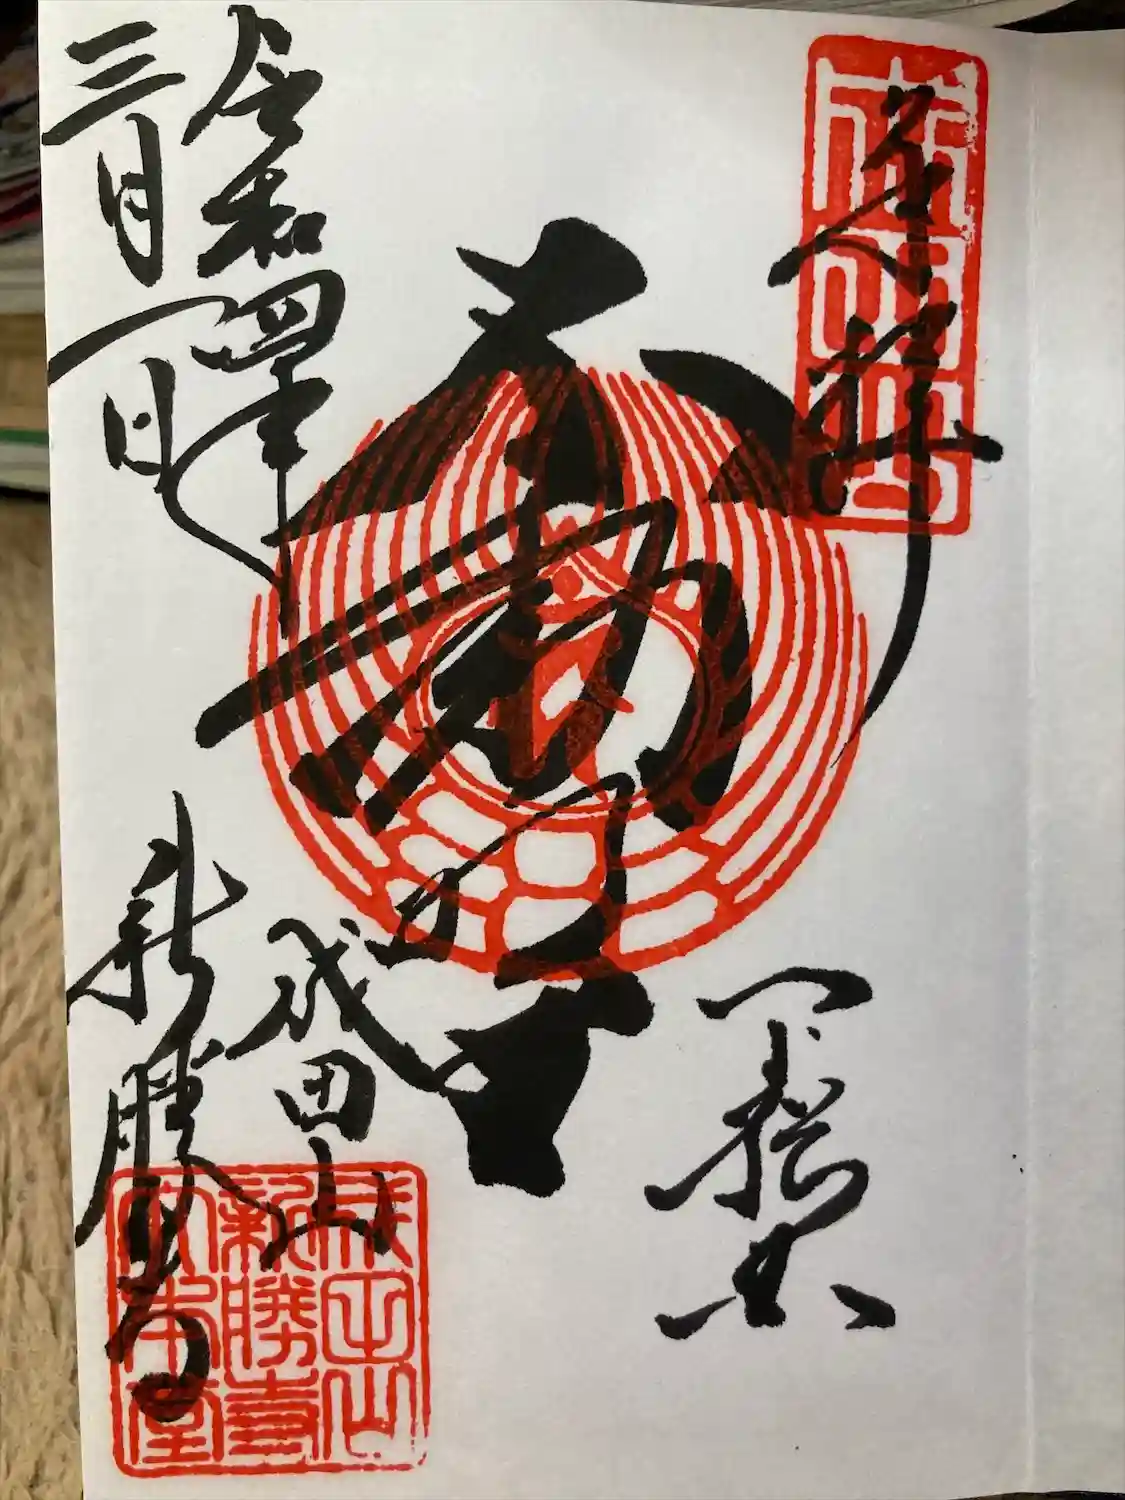 奉拝
成田山
不動
令和四年
三月一日
成田山
新勝寺
成田山
新勝寺
大本堂